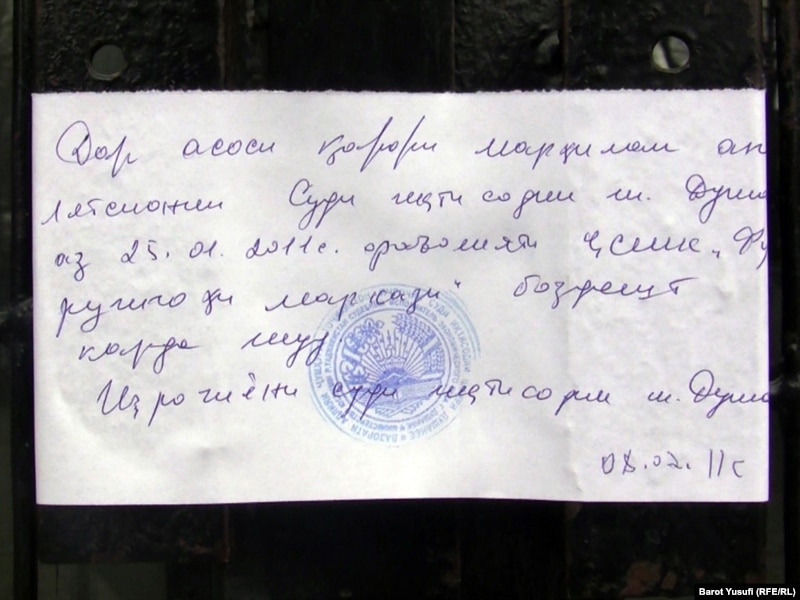 Дар асоси қарори марҳилаи ап
лятсионии Суди иқтисодии ш. Душа
аз 25.01.2011с. фаъолияти ҶСШК „Фу
рушгоҳи марказӣ" боздошт
карда шуд
Иҷрочиёни суди иқтисодии ш. Душа
08.02.11с
ВАЗОРАТИ АДЛИЯИ
Barot Yusufi (RFE/RL)